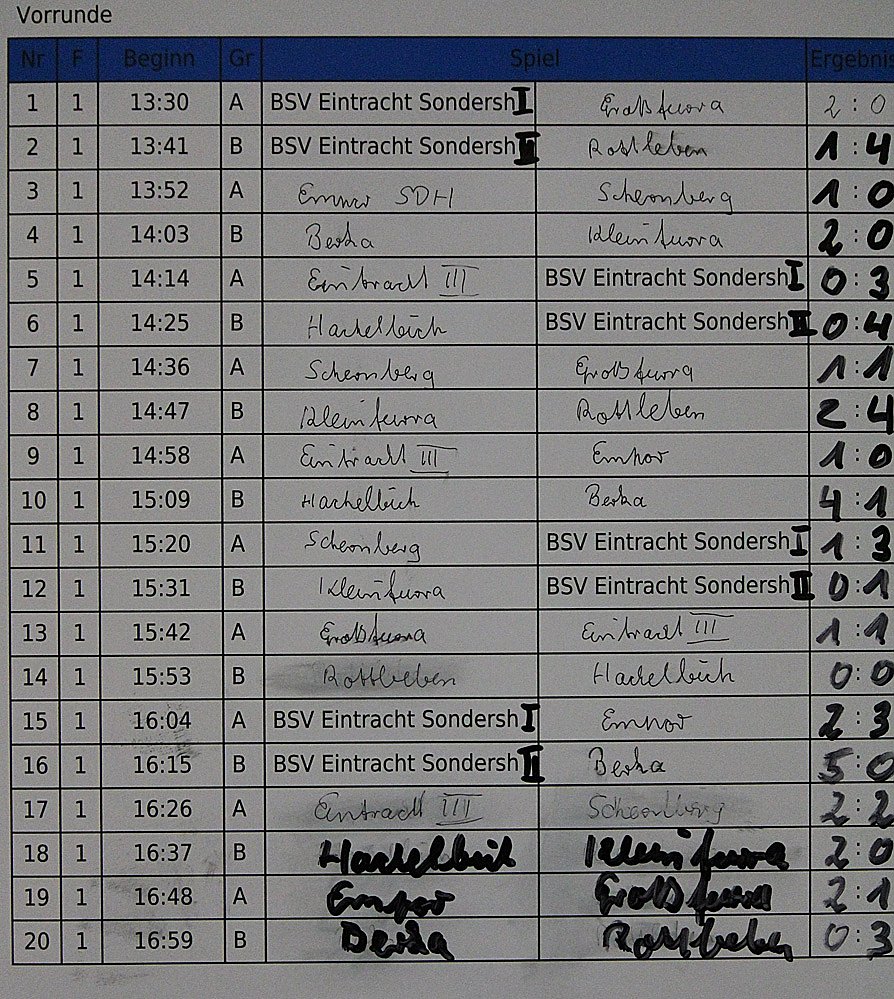 Vorrunde
Nr F Beginn Gr Spiel Ergebnis
1 1 13:30 A BSV Eintracht Sondersh I Großfurra 2 : 0
2 1 13:41 B BSV Eintracht Sondersh II Rottleben 1 : 4
3 1 13:52 A Empor SDH Schernberg 1 : 0
4 1 14:03 B Berka Kleinfurra 2 : 0
5 1 14:14 A Eintracht III BSV Eintracht Sondersh I 0 : 3
6 1 14:25 B Hachelbich BSV Eintracht Sondersh II 0 : 4
7 1 14:36 A Schernberg Großfurra 1 : 1
8 1 14:47 B Kleinfurra Rottleben 2 : 4
9 1 14:58 A Eintracht III Empor 1 : 0
10 1 15:09 B Hachelbich Berka 4 : 1
11 1 15:20 A Schernberg BSV Eintracht Sondersh I 1 : 3
12 1 15:31 B Kleinfurra BSV Eintracht Sondersh II 0 : 1
13 1 15:42 A Großfurra Eintracht III 1 : 1
14 1 15:53 B Rottleben Hachelbich 0 : 0
15 1 16:04 A BSV Eintracht Sondersh I Empor 2 : 3
16 1 16:15 B BSV Eintracht Sondersh II Berka 5 : 0
17 1 16:26 A Eintracht III Schernberg 2 : 2
18 1 16:37 B Hachelbich Kleinfurra 2 : 0
19 1 16:48 A Empor Großfurra 2 : 1
20 1 16:59 B Berka Rottleben 0 : 3